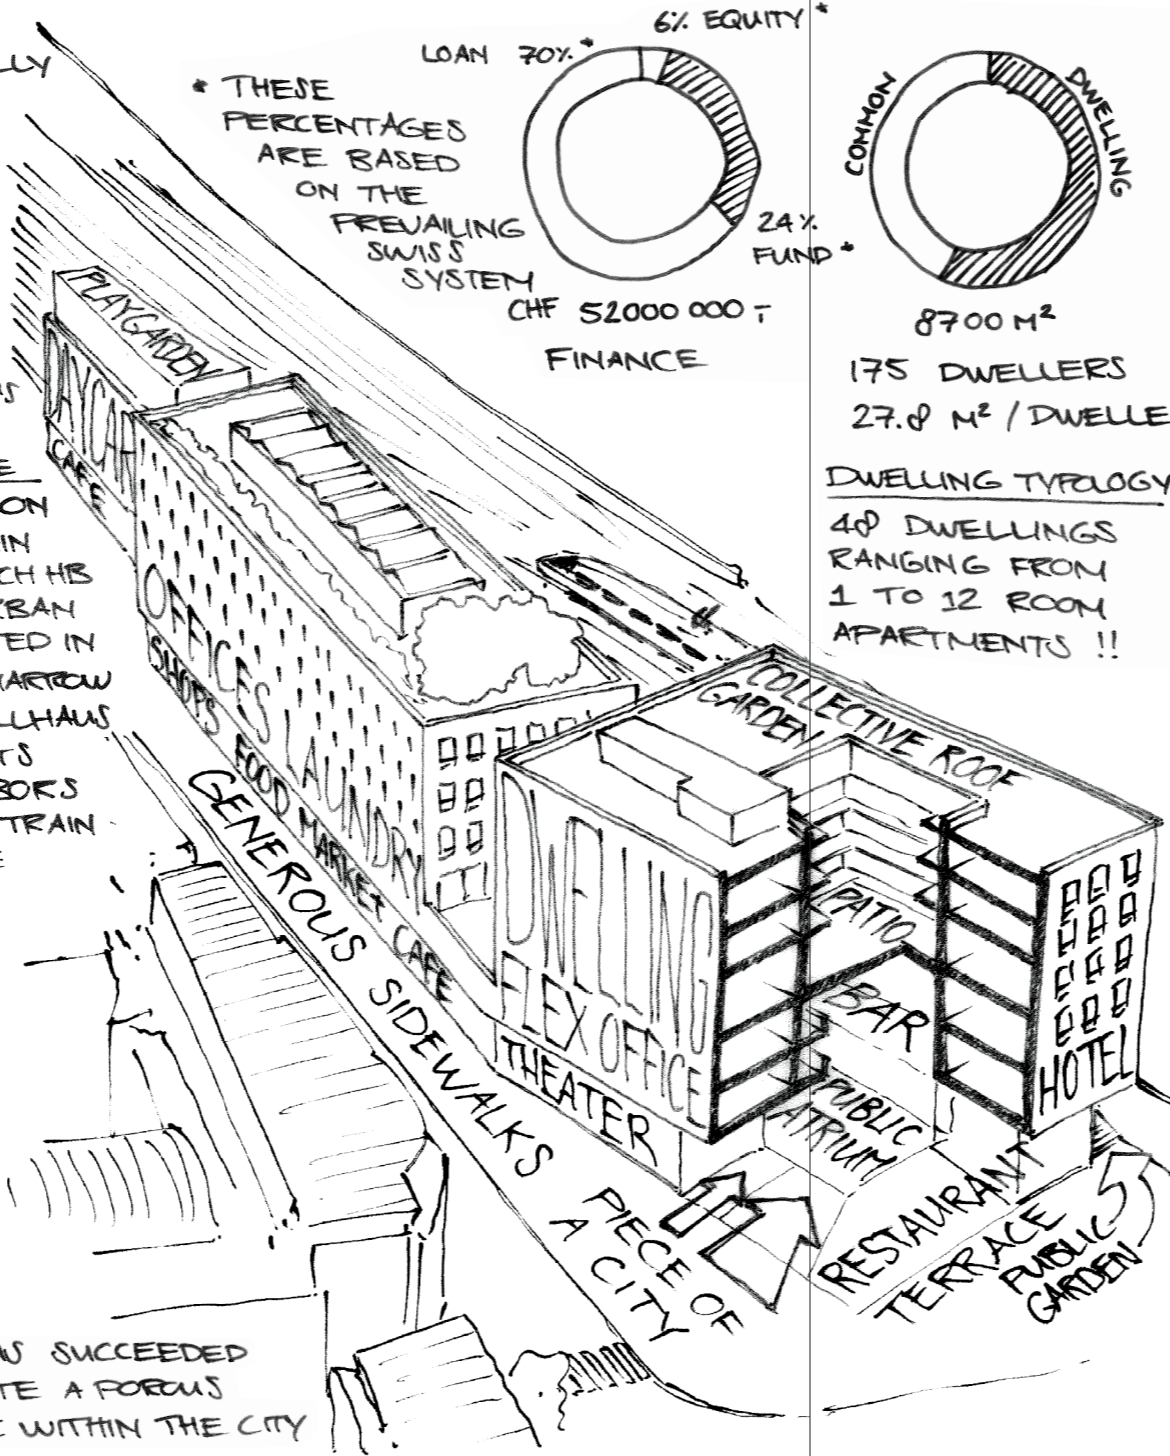 LLY
6% EQUITY *
LOAN 70% *
* THESE
PERCENTAGES
ARE BASED
ON THE
PREVAILING
SWISS
SYSTEM
24%
FUND *
CHF 52000 000.-
FINANCE
COMMON
DWELLING
8700 M²
175 DWELLERS
27.8 M² / DWELLE
DWELLING TYPOLOGY
48 DWELLINGS
RANGING FROM
1 TO 12 ROOM
APARTMENTS !!
S
E
ON
IN
CH HB
RBAN
TED IN
NARROW
LLHAUS
TS
BORS
TRAIN
E
PLAYGARDEN
DAYCAR
CAFE
OFFICES LAUNDRY
SHOPS FOOD MARKET CAFE
GENEROUS SIDEWALKS
COLLECTIVE ROOF
GARDEN
DWELLING
FLEX OFFICE
THEATER
PATIO
BAR
PUBLIC
ATRIUM
HOTEL
RESTAURANT
TERRACE
PUBLIC
GARDEN
PIECE OF
A CITY
AS SUCCEEDED
TE A POROUS
E WITHIN THE CITY